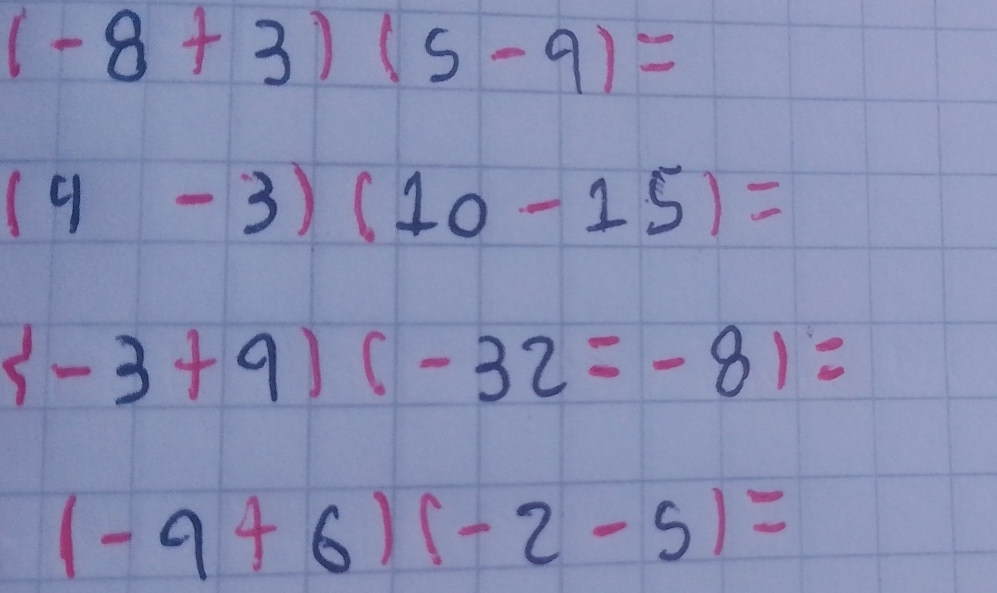 (-8+3)(5-9)=
(4 -3)(10-15)=
{-3+9)(-32=-8)=
(-9+6)(-2-5)=